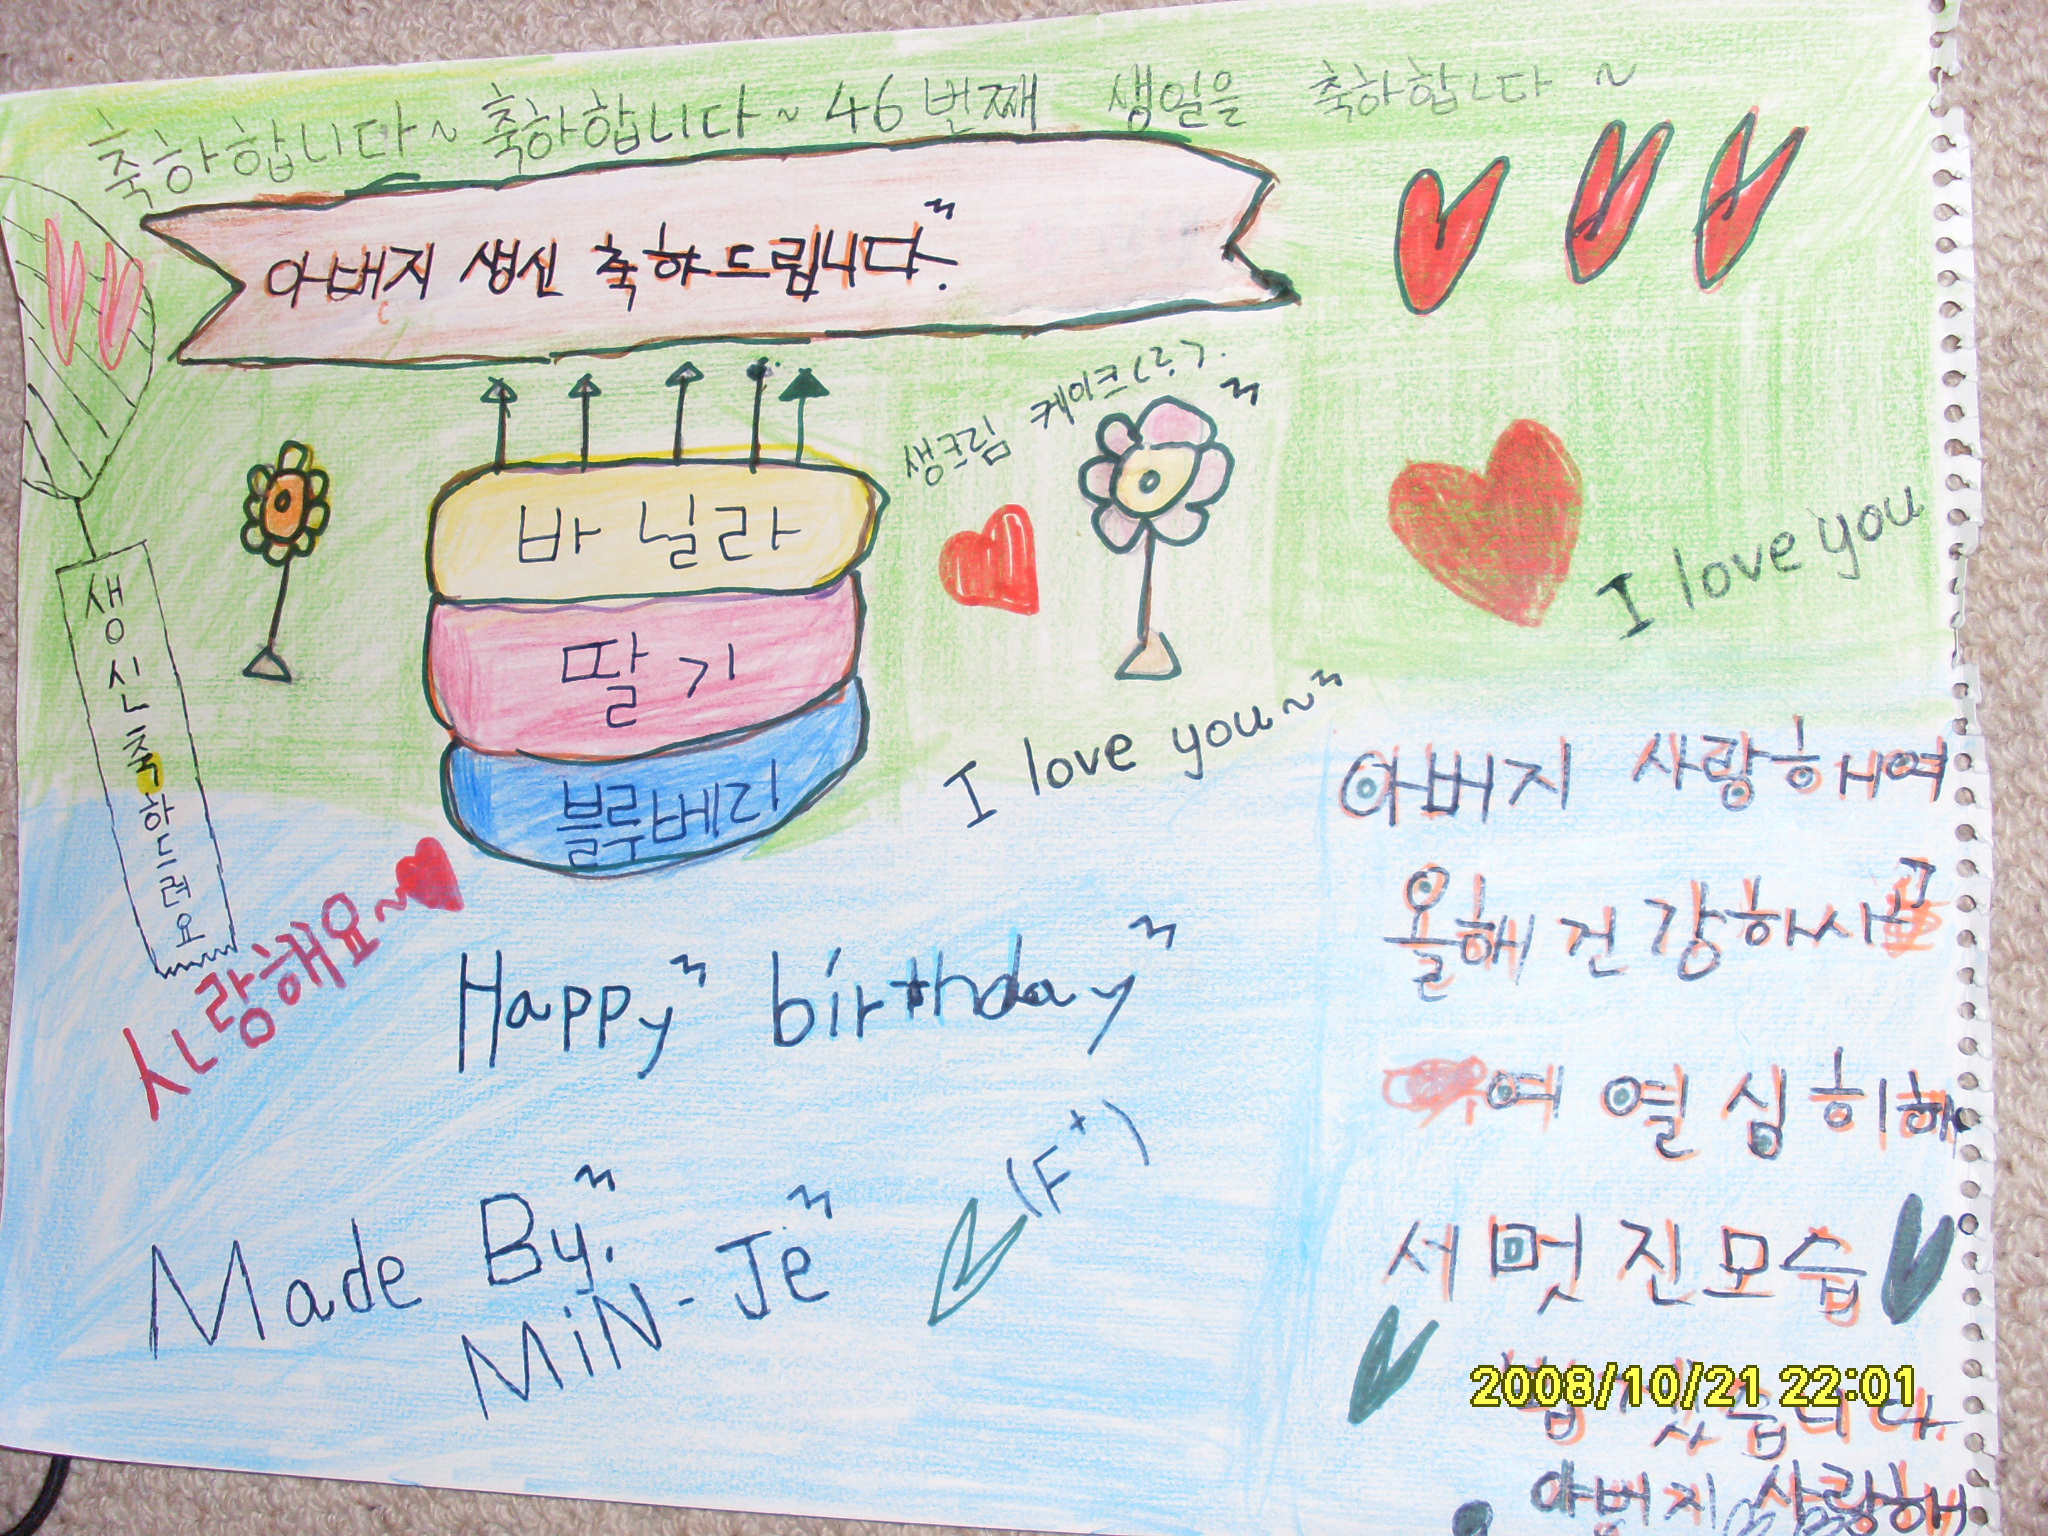 축하합니다~ 축하합니다~ 46번째 생일을 축하합니다~
아버지 생신 축하드립니다.
생크림 케이크
바닐라
딸기
블루베리
생신축하드려요
I love you
I love you~
사랑해요~
Happy birthday
Made By.
MiN-Je
(F+)
아버지 사랑해여
올해 건강하시고
여 열심히해
서 멋진모습
습니다.
아버지 사랑해
2008/10/21 22:01